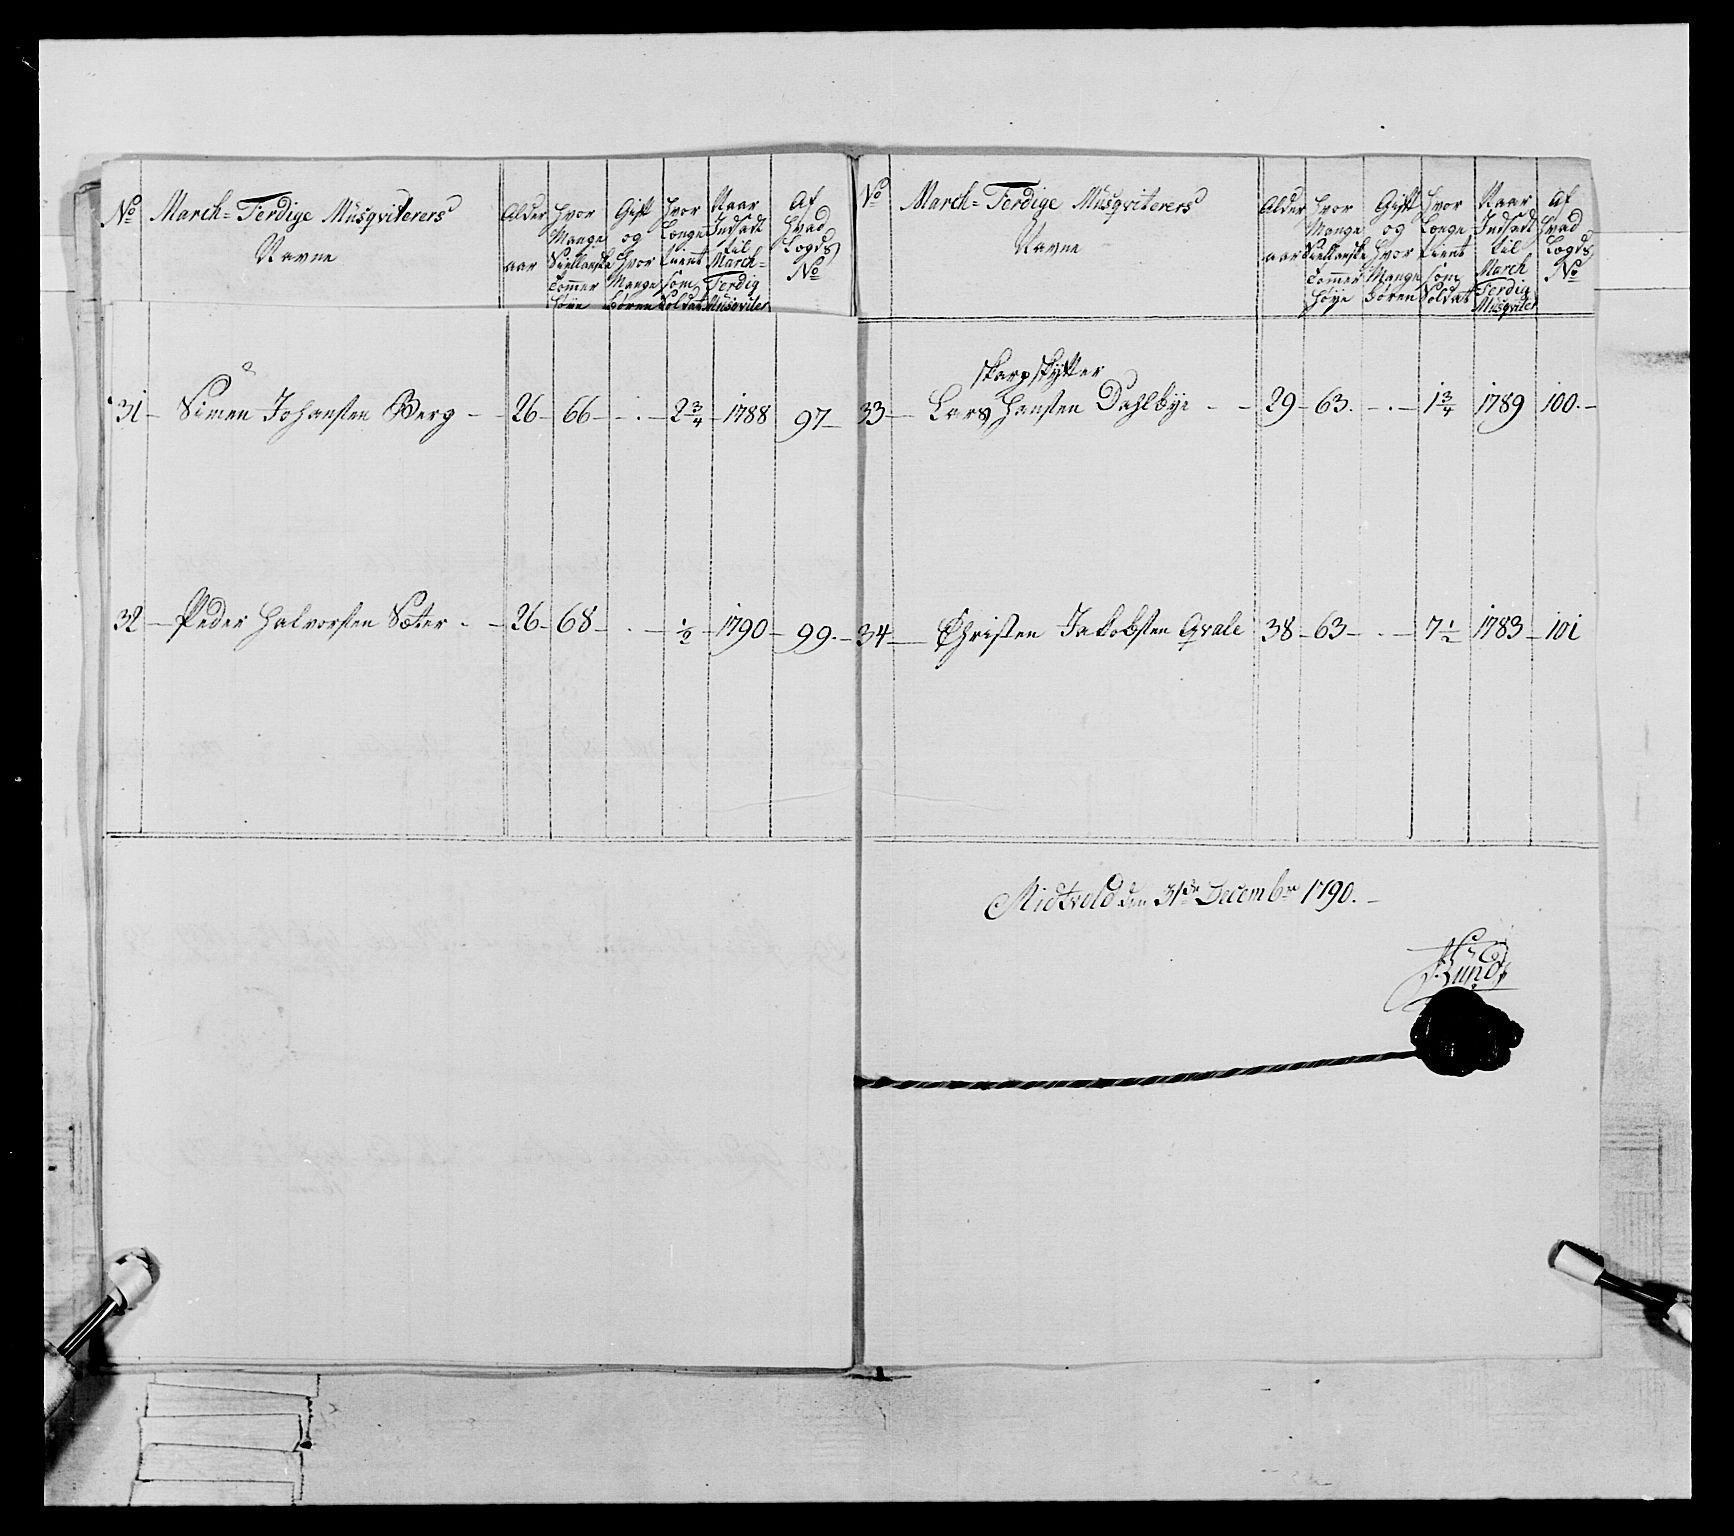 No March-Ferdige Musqviterers Navne | Alder aar | Hvor Mange Siellandske Tommer høye | Gift og Hvor Mange Børen | Hvor Længe tient som Soldat | Naar Indsadt til March-Ferdig Musqviter | Af Hvad Lægds No
31 Simen Johansten Berg 26 66 . 2 3/4 1788 97
32 Peder Halvorsten Sæter 26 68 . 1/2 1790 99
No March-Ferdige Musqviterers Navne | Alder aar | Hvor Mange Siellanske Tommer høye | Gift og Hvor Mange Børen | Hvor Længe tient som Soldat | Naar Indsadt til March Ferdig Musqviter | Af Hvad Lægds No
Skarpskytter
33 Lars Hansten Dahlbye 29 63. . 1 3/4 1789 100.
34 Christen Jakobsten Qvale 38 63 . 7 1/2 1783 101
Midtvold den 31de Decembr 1790.